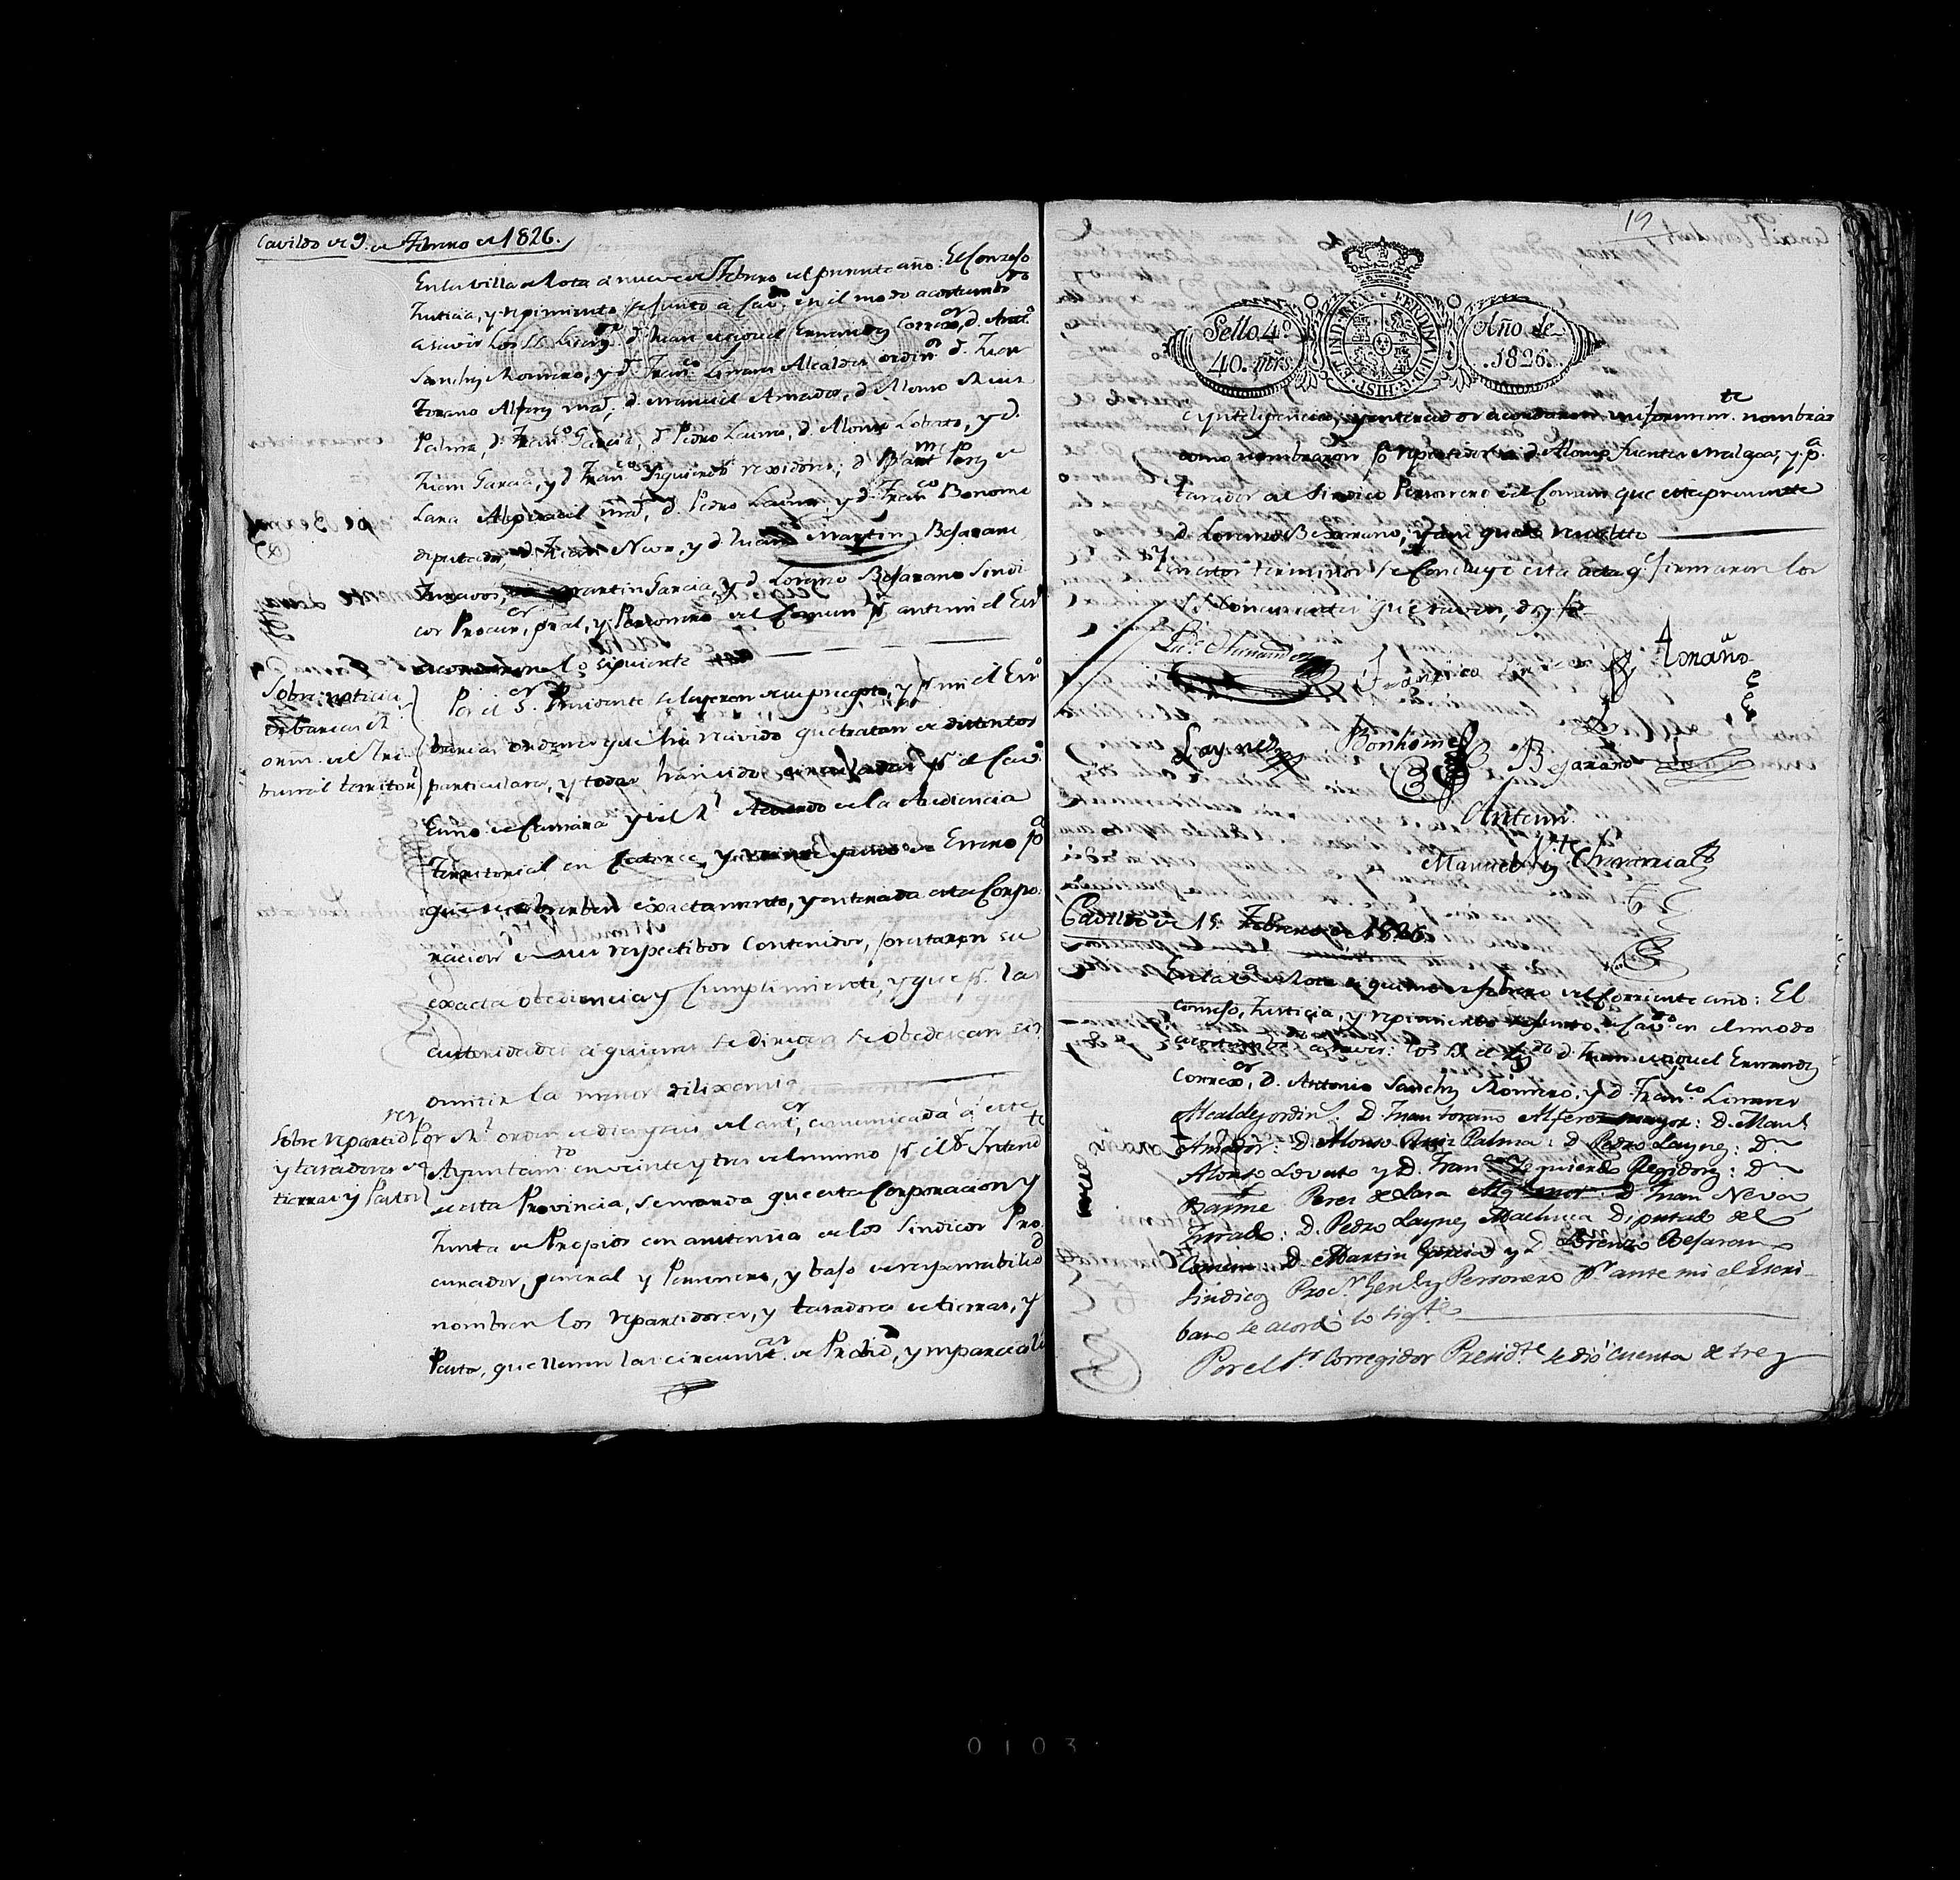 Cavildo de 9. de Febrero de 1826.
En la villa de Rota a nueve de Febrero del presente año: El Consejo
Justicia, y regimiento se junto a Cavdo en el modo acostumbdo
a saver los SS. Licdo d. Juan Miguel Ernandez Correxor, d. Anto
Sanchez Romero, y d. Franco Linares Alcaldes ordins d. Juan
Torano Alferez mar, d. Manuel Amador, d. Alonso Ruiz
Palma, d. Franco Garcia, d. Pedro Laines, d. Alonso Lobato, y d.
Juan Garcia, y d. Franco Yzquierdo rexidores; d. Bartme Perez de
Lara Alguacil mar, d. Pedro Laines, y d. Franco Bonome
diputados, d. Juan Neva, y d. Juan Martin Bejarano
Jurados, Martin Garcia, y d. Lorenzo Bejarano Sindi
cos Procuror gral, y Personero del Comun pr antemi el Esno
acordaron lo siguiente
Sobre noticia
de barias Rs
ordns del Tri
bunal territorl
Por el Sor Presidente se leyeron de su precepto, y pr mi el Esno
barias ordenes que ha recivido que tratan de distintos
particulares, y todas han sido circuladas pr el Cavo
Esno de Camara y del Rl Acuerdo de la Audiencia
Territorial en catorce, y veinte y uno de Enero pa
que se observen exactamente, y enterada esta Corpo
racion de sus respectibos contenidos, prestaron su
exacta obediencia y Cumplimiento, y que pr las
autoridades a quienes se dirigen se obedescan sin
omitir la menor dilixencia
Sobre repartidores
y tasadores de
tierras y Pastos
Por Rl orden de diez y seis del antor, comunicada a este
Ayuntamto en veinte y tres del mismo pr el Sr Intendte
de esta Provincia, se manda que esta Corporacion y
Junta de Propios con asistencia de los Sindicos Pro
curador, general y Personero, y bajo de responsabilid
nombren los repartidores, y tasadores de tierras, y
Pasto, que llenen las circunsts de Probid, y imparciali
19
Sello 4º
40. mrs
HISP. ET IND. REX
FERDIN. VII. D. G.
Año de
1826.
e ynteligencia; y enterados acordaron uniformemte nombrar
como nombraron pr repartidor a d. Alonso Fuentes Malgas, y pa
tasador al Sindico Personero del Comun que esta presente
d. Lorenzo Bejarano; y asi quedo resuelto
Y en estos terminos se concluye esta acta qe firmaron los
SS. Concurrentes que saven, doy fe
Ldo Hernandez
Francisco Linares
Toraño
Laynez
Bonhome
Bejarano
Antemi
Manuel
Cavildo de 15. Febrero de 1826.
En la va de Rota a quinse de febrero del corriente año: El
consejo, Justicia, y regimiento se junto a Cavdo en el modo
acostumbdo a saver: los SS. el Lizdo d. Juan Miguel Ernandez
Correxor, d. Antonio Sanchez Romero: y d. Franco Linares
Alcaldes ordins. D. Juan torano Alferez mayor: D. Manl
Amador: D. Alonso Ruiz Palma: D. Pedro Laynez: Dn
Alonso Lovato y D. Franco Yzquierdo Regidores: Dn
Barme Perez de Lara Algl mor: D. Juan Neva
Jurado: D. Pedro Laynez Machuca Diputado del
Comun D. Martin Garcia y D. Lorenzo Bejarano
Sindico Procr Genl y Personero pr ante mi el Escri
bano se acordó lo sigte
Por el Sr Corregidor Presidte se dió cuenta de tres
0103